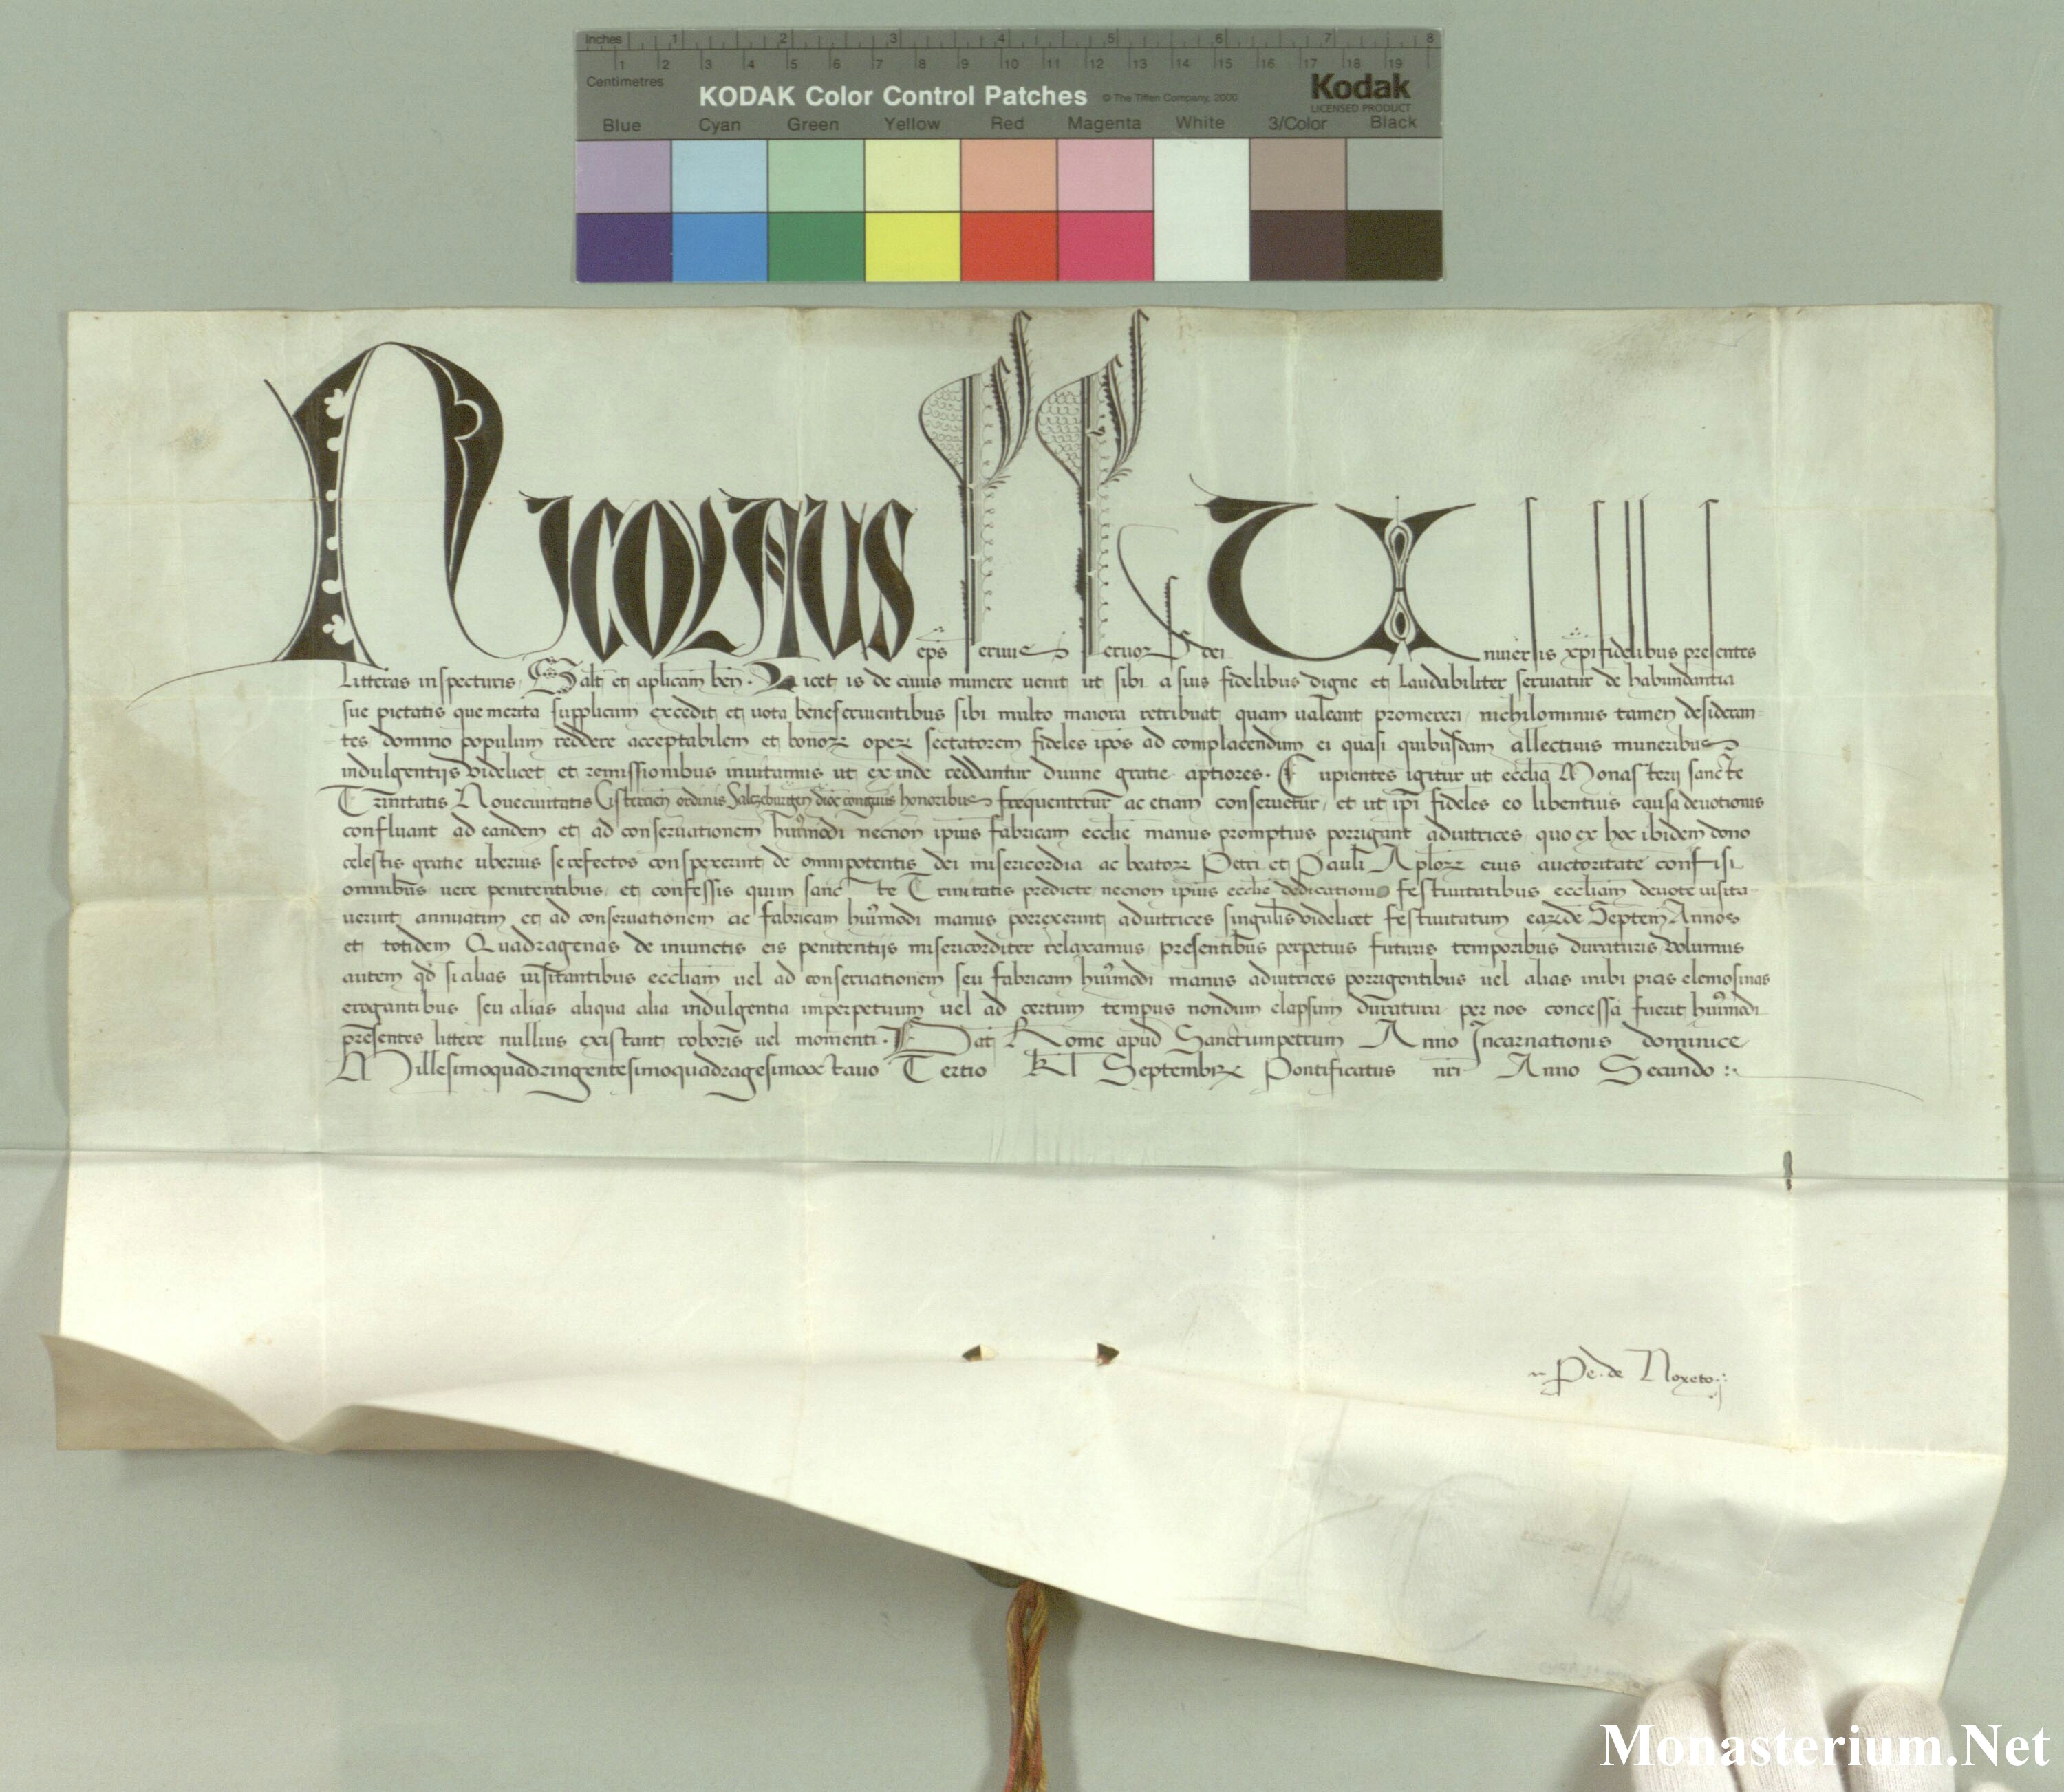 Inches 1 2 3 4 5 6 7 8
1 2 3 4 5 6 7 8 9 10 11 12 13 14 15 16 17 18 19
Centimetres
KODAK Color Control Patches © The Tiffen Company, 2000 Kodak
LICENSED PRODUCT
Blue Cyan Green Yellow Red Magenta White 3/Color Black
Nicolaus eps seruus seruor dei Uniuersis xpifidelibus presentes
litteras inspecturis Salt et aplicam ben. Licet is de cuius munere uenit ut sibi a suis fidelibus digne et laudabiliter seruiatur de habundantia
sue pietatis que merita supplicum excedit et uota beneseruientibus sibi multo maiora retribuat quam ualeant promereri nichilominus tamen desideran=
tes domino populum reddere acceptabilem et bonor oper sectatorem fideles ipos ad complacendum ei quasi quibusdam allectiuis muneribus
indulgentijs videlicet et remissionibus inuitamus ut exinde reddantur diuine gratie aptiores. Cupientes igitur ut ecclia Monasterij sancte
Trinitatis Novecivitatis Cistercien ordinis Salczeburgen dioc congruis honoribus frequentetur ac etiam conseruetur, et ut ipi fideles eo libentius causa deuotionis
confluant ad eandem et ad conseruationem huiusmodi necnon ipius fabricam ecclie manus promptius porrigant adiutrices quo ex hoc ibidem dono
celestis gratie uberius se refectos conspexerint de omnipotentis dei misericordia ac beator Petri et Pauli Aplor eius auctoritate confisi
omnibus uere penitentibus et confessis qui in sancte Trinitatis predicte necnon ipius ecclie dedicationis festiuitatibus eccliam deuote uisita-
uerint annuatim et ad conseruationem ac fabricam huiusmodi manus porrexerint adiutrices singulis videlicet festiuitatum earumde Septem Annos
et totidem Quadragenas de iniunctis eis penitentijs misericorditer relaxamus presentibus perpetuis futuris temporibus duraturis Volumus
autem qd si alias uisitantibus eccliam uel ad conseruationem seu fabricam huiusmodi manus adiutrices porrigentibus uel alias inibi pias elemosinas
erogantibus seu alias aliqua alia indulgentia imperpetuum uel ad certum tempus nondum elapsum duratura per nos concessa fuerit huiusmodi
presentes littere nullius existant roboris uel momenti. Dat Rome apud Sanctumpetrum Anno Incarnationis dominice
Millesimoquadringentesimoquadragesimooctauo Tertio Kl Septembr Pontificatus nri Anno Secundo :
Pe. de Noxeto
Monasterium.Net